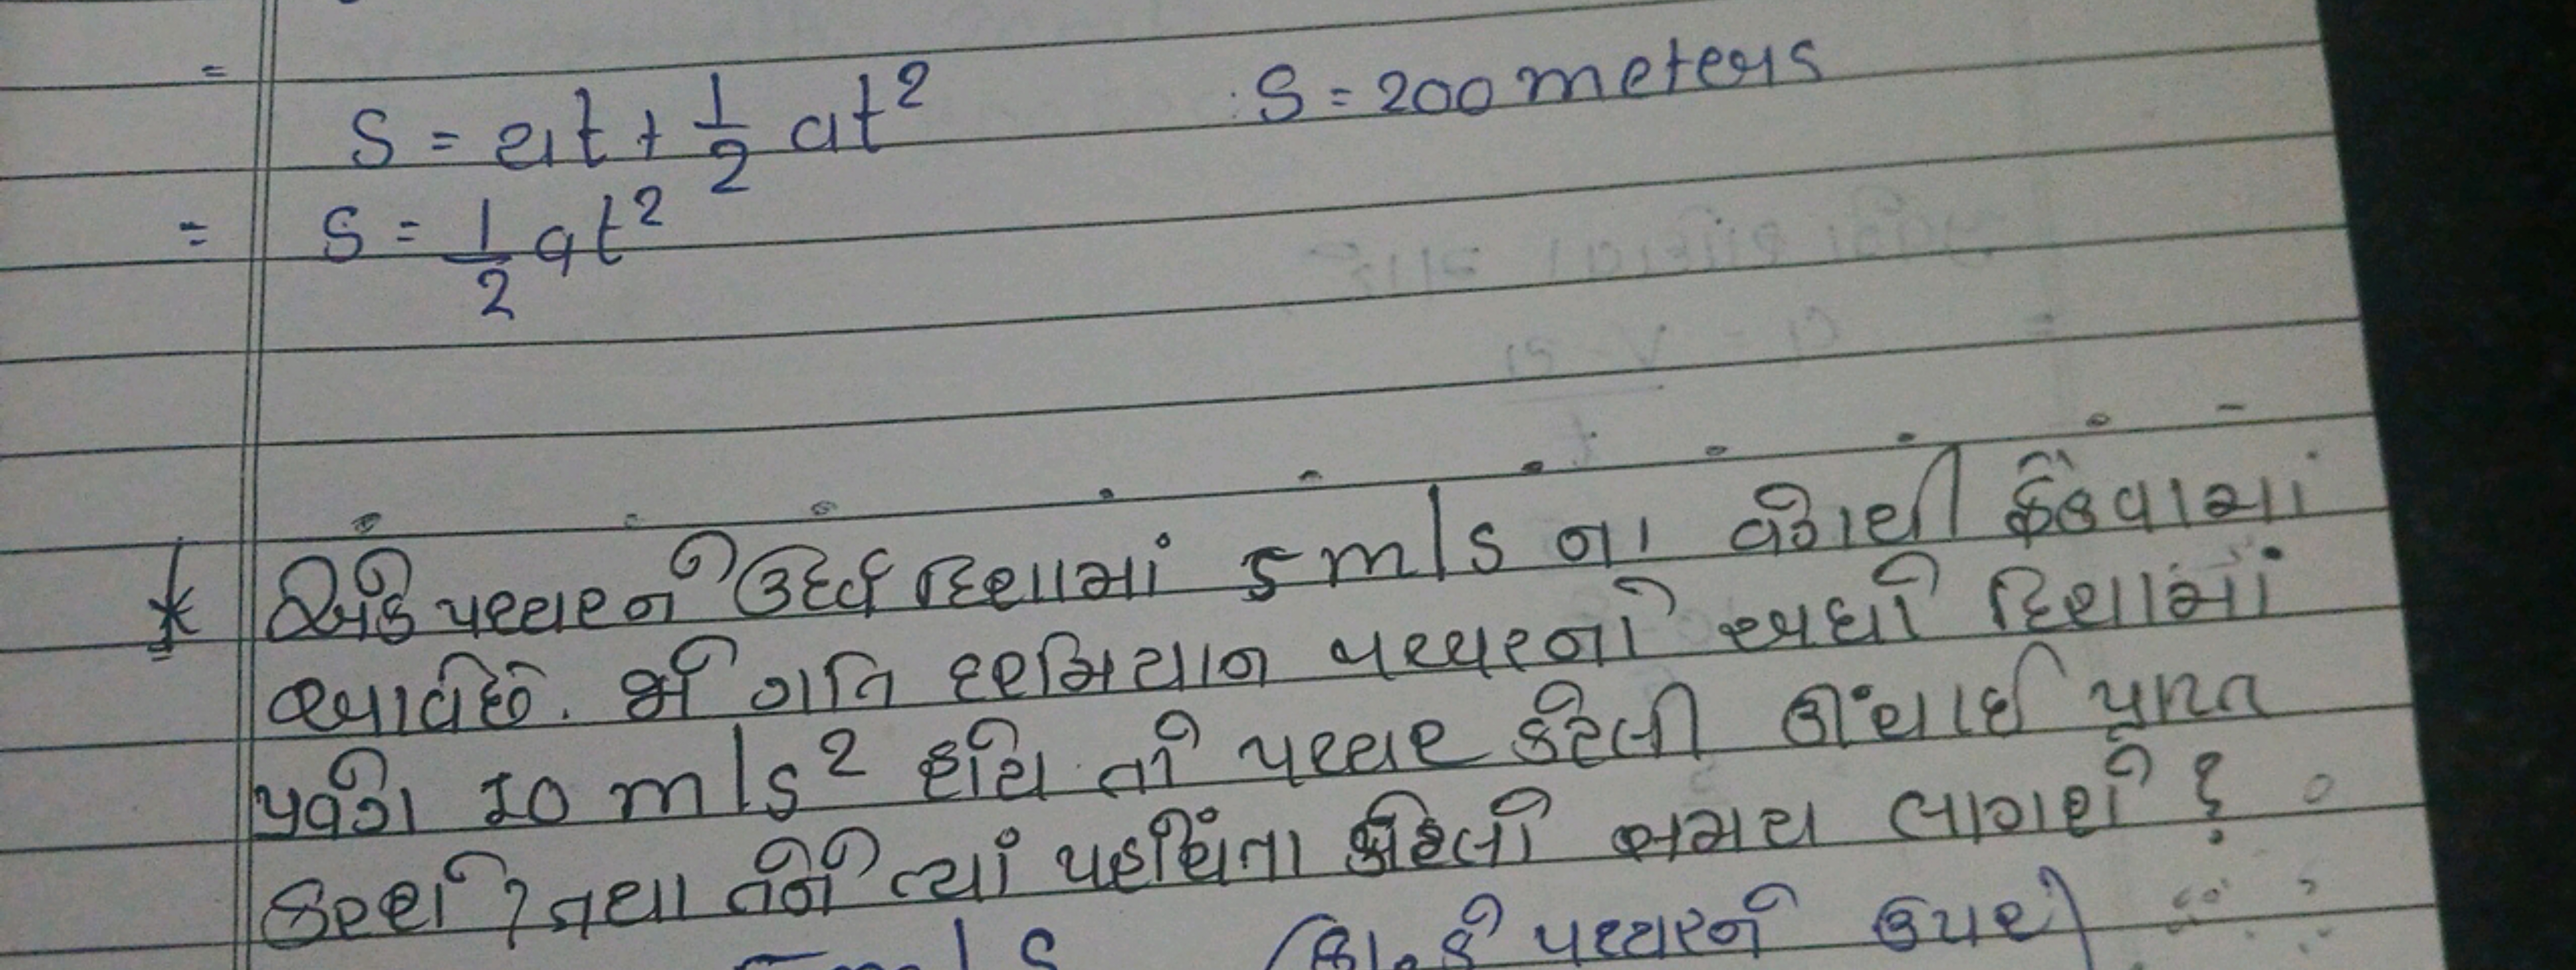 = S = ut + 1/2 at² S = 200 meters
= S = 1/2 at²
* એક પથ્થરને ઉર્ધ્વ દિશામાં 5 m/s ના વેગથી ફેંકવામાં
આવેછે. જો ગતિ દરમિયાન પથ્થરનો અધો દિશામાં
પ્રવેગ 10 m/s² હોય તો પથ્થર કેટલી ઊંચાઈ પ્રાપ્ત
કરશે? તથા તેને ત્યાં પહોંચતા કેટલો સમય લાગશે?
પથ્થરને ઉપર)